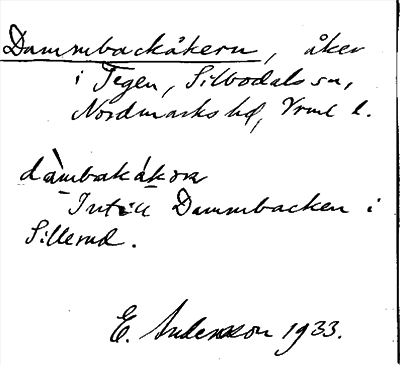 Dammbackåkern, åker
i Tegen, Silbodals sn,
Nordmarks hd, Vrml l.
dàmbakåkɷa
Intill Dammbacken i
Sillerud.
E. Andersson 1933.